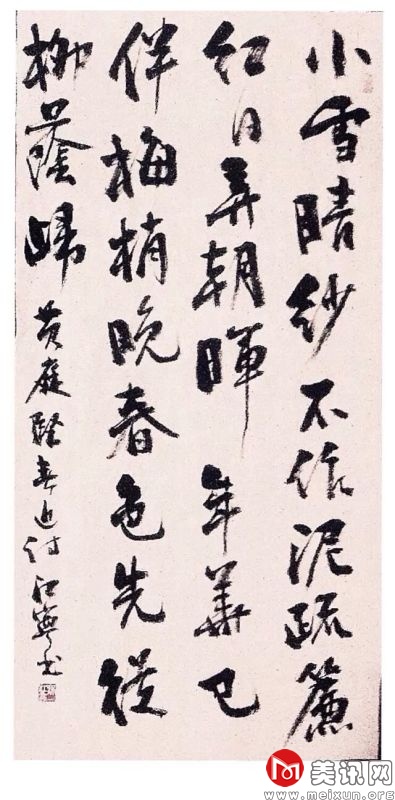 小雪晴紗不作泥疏簾
紅日弄朝暉年華已
伴梅梢晚春色先從
柳蔭歸 黄庭堅春近詩 江寧书
美讯网
www.meixun.org